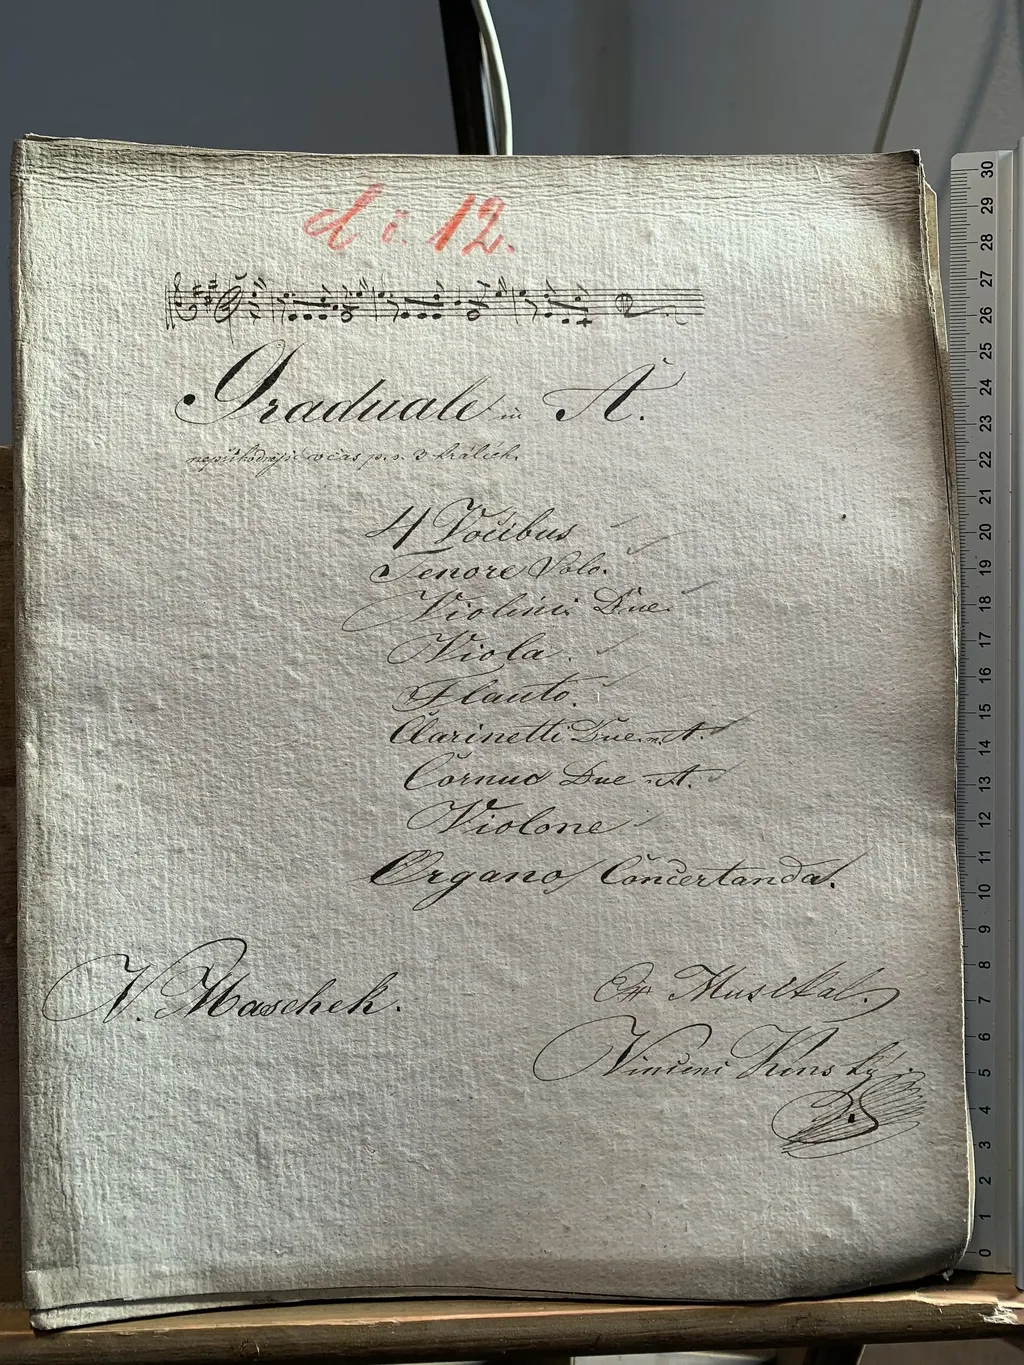 d i. 12.
Graduale in A.
nepříhodnější včas po s. 3 králích.
4 Vocibus
Tenore Solo.
Violini Due
Viola.
Flauto.
Clarinetti Due in A.
Cornua Due in A.
Violone
Organo Concertanda.
V. Maschek.
Ex Musikal.
Vinceni Kinský
30
29
28
27
26
25
24
23
22
21
20
19
18
17
16
15
14
13
12
11
10
9
8
7
6
5
4
3
2
1
0